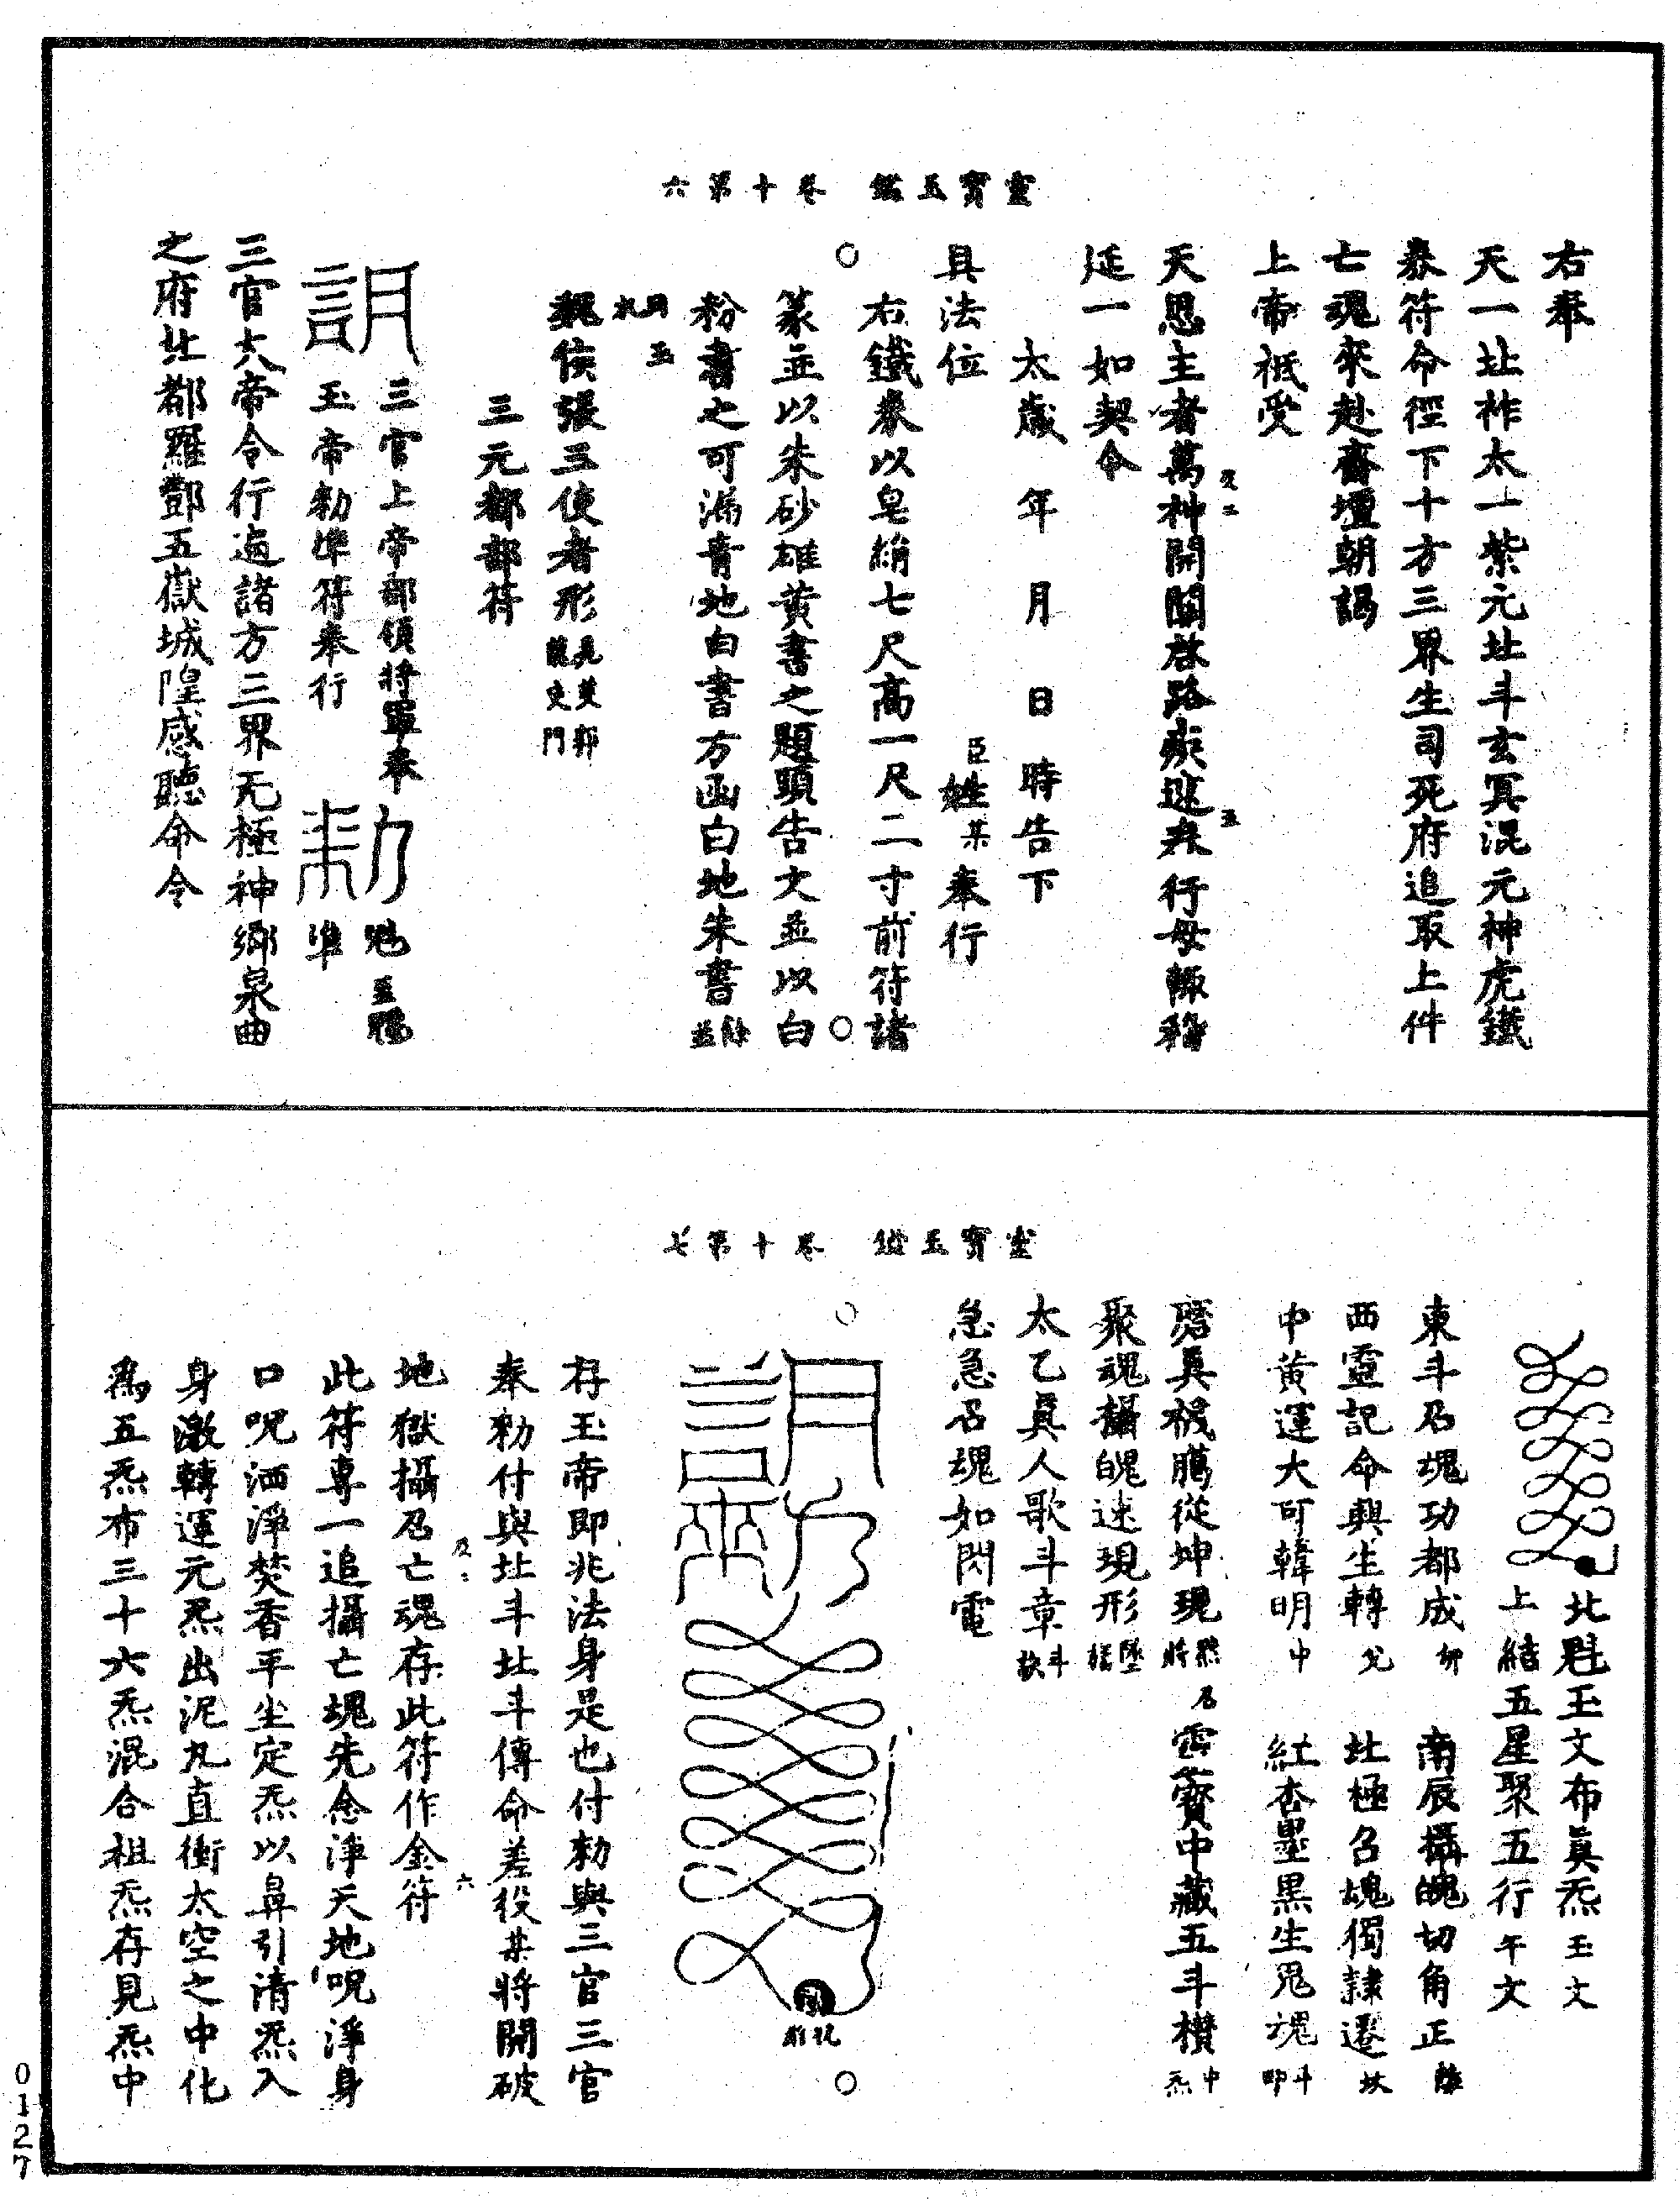 靈寶玉鑑 卷十第六
右奉
天一北祚太一紫元北斗玄冥混元神虎鐵
券符命徑下十方三界生司死府追取上件
亡魂來赴齋壇朝謁
上帝祗受
天恩主者萬神開關啓路疾速奉行毋輙稽
延一如契令
太歲 年 月 日 時告下
具法位 臣姓某奉行
右鐵券以皂絹七尺高一尺二寸前符諸
篆並以朱砂雄黃書之題頭告文並以白
粉書之可漏青地白書方函白地朱書
三元都部符
三官上帝部領將軍奉
玉帝勑準符奉行
三官大帝令行遍諸方三界无極神鄉泉曲
之府北都羅酆五嶽城隍感聽命令
靈寶玉鑑 卷十第七
北魁玉文布眞炁 玉文
上結五星聚五行 午文
東斗召魂功都成 卯 南辰攝魄切角正 離
西靈記命與生轉 兌 北極召魂獨隷遷 坎
中黃運大可韓明 中 紅杏墨黑生鬼魂
聚魂攝魄速現形
太乙眞人歌斗章
急急召魂如閃電
存玉帝即兆法身是也付勑與三官三官
奉勑付與北斗北斗傳命差役某將開破
地獄攝召亡魂存此符作金符
此符專一追攝亡魂先念淨天地呪淨身
口呪洒淨焚香平坐定炁以鼻引清炁入
身激轉運元炁出泥丸直衝太空之中化
爲五炁布三十六炁混合祖炁存見炁中
0127